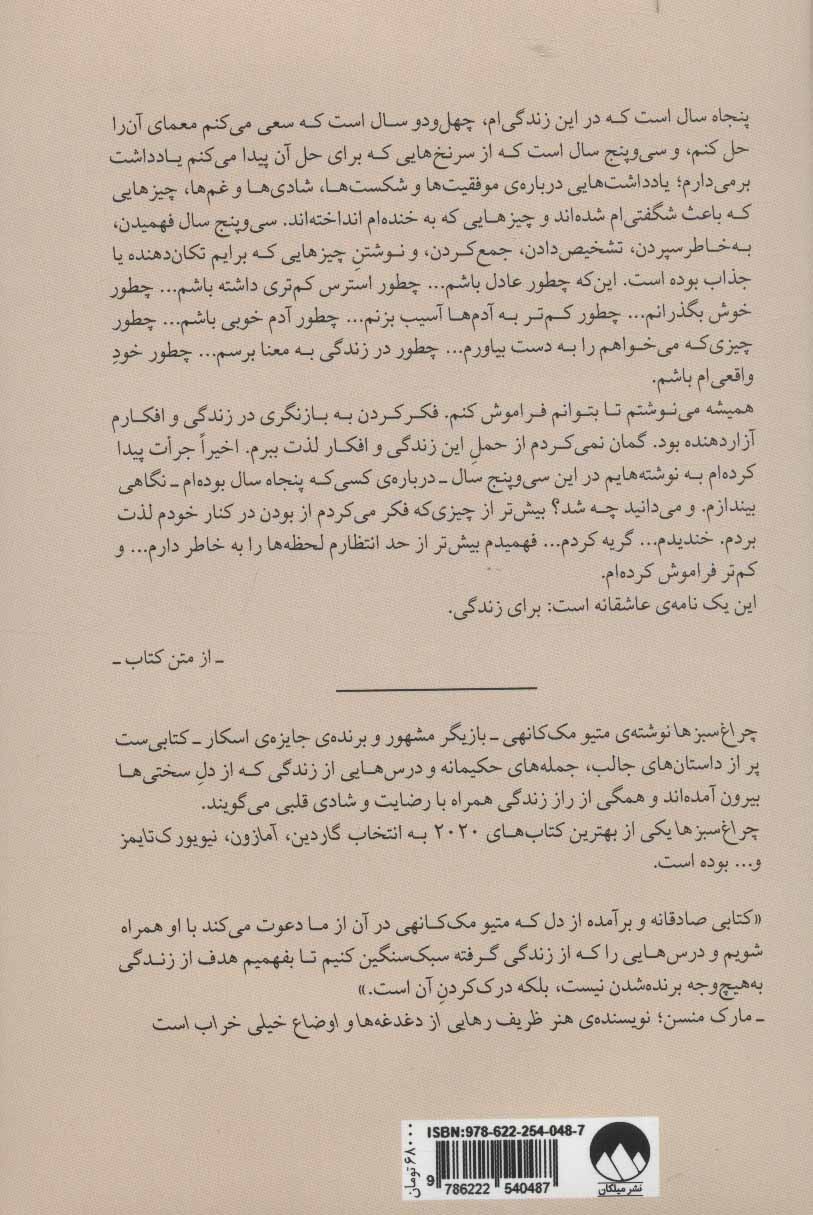 پنجاه سال است که در این زندگی‌ام، چهل‌ودو سال است که سعی می‌کنم معمای آن‌را
حل کنم، و سی‌وپنج سال است که از سرنخ‌هایی که برای حل آن پیدا می‌کنم یادداشت
برمی‌دارم؛ یادداشت‌هایی درباره‌ی موفقیت‌ها و شکست‌ها، شادی‌ها و غم‌ها، چیزهایی
که باعث شگفتی‌ام شده‌اند و چیزهایی که به خنده‌ام انداخته‌اند. سی‌وپنج سال فهمیدن،
به‌خاطرسپردن، تشخیص‌دادن، جمع‌کردن، و نوشتنِ چیزهایی که برایم تکان‌دهنده یا
جذاب بوده است. این‌که چطور عادل باشم... چطور استرس کم‌تری داشته باشم... چطور
خوش بگذرانم... چطور کم‌تر به آدم‌ها آسیب بزنم... چطور آدم خوبی باشم... چطور
چیزی‌که می‌خواهم را به دست بیاورم... چطور در زندگی به معنا برسم... چطور خودِ
واقعی‌ام باشم.
همیشه می‌نوشتم تا بتوانم فراموش کنم. فکرکردن به بازنگری در زندگی و افکارم
آزاردهنده بود. گمان نمی‌کردم از حملِ این زندگی و افکار لذت ببرم. اخیراً جرأت پیدا
کرده‌ام به نوشته‌هایم در این سی‌وپنج سال ـ درباره‌ی کسی‌که پنجاه سال بوده‌ام ـ نگاهی
بیندازم. و می‌دانید چه شد؟ بیش‌تر از چیزی‌که فکر می‌کردم از بودن در کنار خودم لذت
بردم. خندیدم... گریه کردم... فهمیدم بیش‌تر از حد انتظارم لحظه‌ها را به خاطر دارم... و
کم‌تر فراموش کرده‌ام.
این یک نامه‌ی عاشقانه است: برای زندگی.
ـ از متن کتاب ـ
چراغ‌سبزها نوشته‌ی متیو مک‌کانهی ـ بازیگر مشهور و برنده‌ی جایزه‌ی اسکار ـ کتابی‌ست
پر از داستان‌های جالب، جمله‌های حکیمانه و درس‌هایی از زندگی که از دلِ سختی‌ها
بیرون آمده‌اند و همگی از راز زندگی همراه با رضایت و شادی قلبی می‌گویند.
چراغ‌سبزها یکی از بهترین کتاب‌های ۲۰۲۰ به انتخاب گاردین، آمازون، نیویورک‌تایمز
و... بوده است.
«کتابی صادقانه و برآمده از دل که متیو مک‌کانهی در آن از ما دعوت می‌کند با او همراه
شویم و درس‌هایی را که از زندگی گرفته سبک‌سنگین کنیم تا بفهمیم هدف از زندگی
به‌هیچ‌وجه برنده‌شدن نیست، بلکه درک‌کردنِ آن است.»
ـ مارک منسن؛ نویسنده‌ی هنر ظریف رهایی از دغدغه‌ها و اوضاع خیلی خراب است
ISBN:978-622-254-048-7
9 786222 540487
۶۸۰۰۰ تومان
نشر میلکان